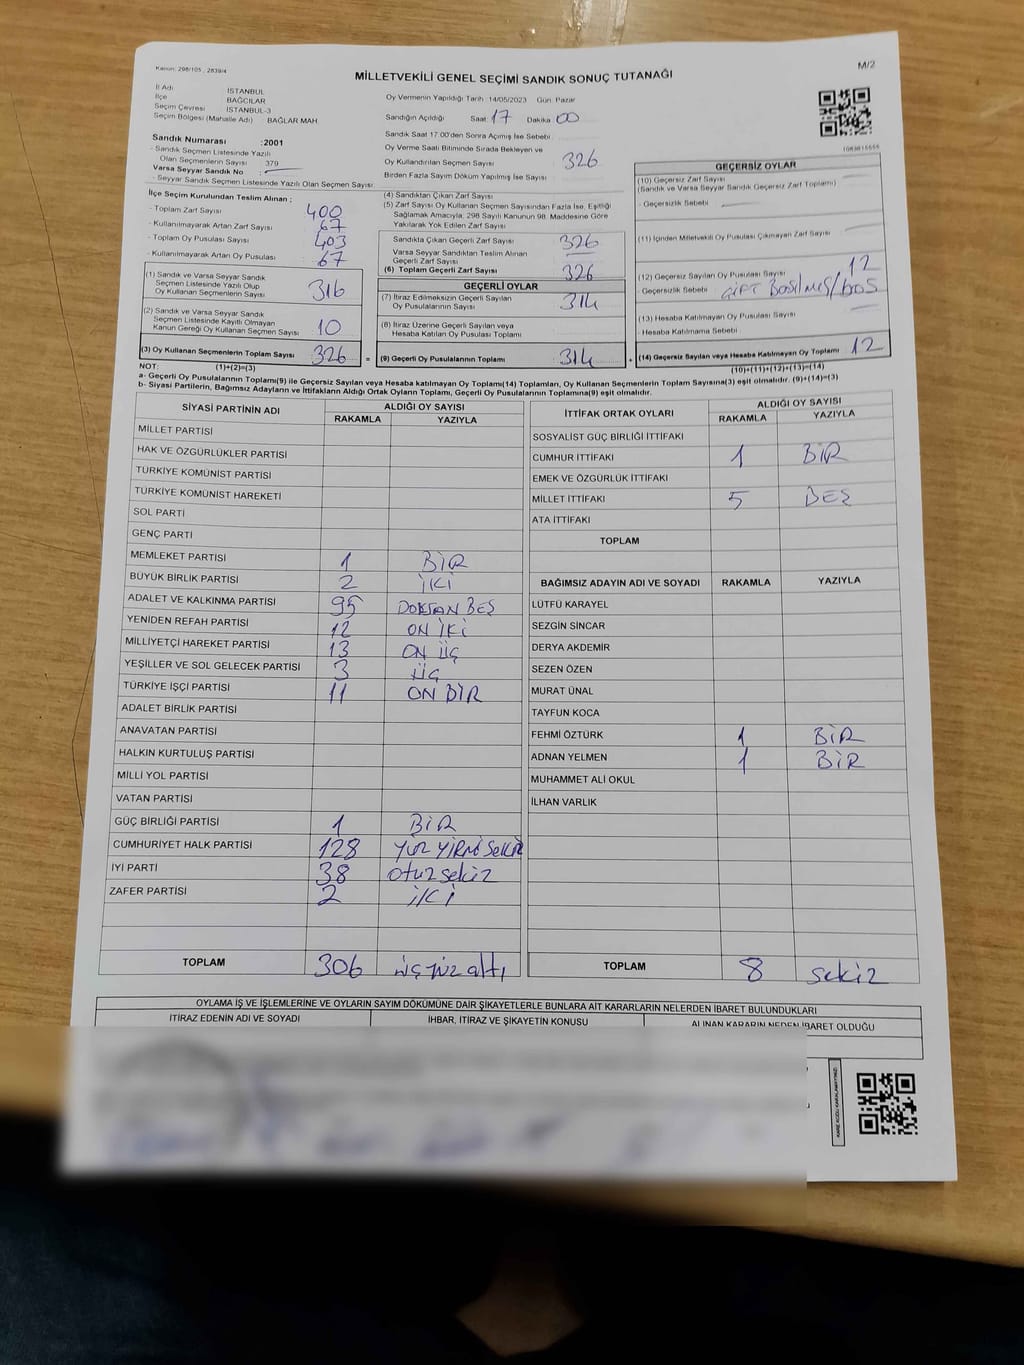 Kanun: 298/105 , 2839/4
M/2
MİLLETVEKİLİ GENEL SEÇİMİ SANDIK SONUÇ TUTANAĞI
İl Adı İSTANBUL
İlçe BAĞCILAR
Seçim Çevresi İSTANBUL-3
Seçim Bölgesi (Mahalle Adı) BAĞLAR MAH.
Sandık Numarası :2001
- Sandık Seçmen Listesinde Yazılı
Olan Seçmenlerin Sayısı 379
Varsa Seyyar Sandık No :
- Seyyar Sandık Seçmen Listesinde Yazılı Olan Seçmen Sayısı:
Oy Vermenin Yapıldığı Tarih :14/05/2023 Gün: Pazar
Sandığın Açıldığı Saat: 17 Dakika 00
Sandık Saat 17.00'den Sonra Açımış İse Sebebi:
Oy Verme Saati Bitiminde Sırada Bekleyen ve
Oy Kullandırılan Seçmen Sayısı 326
Birden Fazla Sayım Döküm Yapılmış İse Sayısı
İlçe Seçim Kurulundan Teslim Alınan ;
- Toplam Zarf Sayısı 400
- Kullanılmayarak Artan Zarf Sayısı 67
- Toplam Oy Pusulası Sayısı 403
- Kullanılmayarak Artan Oy Pusulası 67
(1) Sandık ve Varsa Seyyar Sandık
Seçmen Listesinde Yazılı Olup
Oy Kullanan Seçmenlerin Sayısı 316
(2) Sandık ve Varsa Seyyar Sandık
Seçmen Listesinde Kayıtlı Olmayan
Kanun Gereği Oy Kullanan Seçmen Sayısı 10
(3) Oy Kullanan Seçmenlerin Toplam Sayısı 326 =
(4) Sandıktan Çıkan Zarf Sayısı
(5) Zarf Sayısı Oy Kullanan Seçmen Sayısından Fazla İse, Eşitliği
Sağlamak Amacıyla; 298 Sayılı Kanunun 98. Maddesine Göre
Yakılarak Yok Edilen Zarf Sayısı
Sandıkta Çıkan Geçerli Zarf Sayısı 326
Varsa Seyyar Sandıktan Teslim Alınan
Geçerli Zarf Sayısı
(6) Toplam Geçerli Zarf Sayısı 326
GEÇERLİ OYLAR
(7) İtiraz Edilmeksizin Geçerli Sayılan
Oy Pusulalarının Sayısı 314
(8) İtiraz Üzerine Geçerli Sayılan veya
Hesaba Katılan Oy Pusulası Toplamı
(9) Geçerli Oy Pusulalarının Toplamı 314 +
1083815555
GEÇERSİZ OYLAR
(10) Geçersiz Zarf Sayısı
(Sandık ve Varsa Seyyar Sandık Geçersiz Zarf Toplamı)
- Geçersizlik Sebebi
(11) İçinden Milletvekili Oy Pusulası Çıkmayan Zarf Sayısı
(12) Geçersiz Sayılan Oy Pusulası Sayısı 12
- Geçersizlik Sebebi ÇİFT BASILMIŞ/BOŞ
(13) Hesaba Katılmayan Oy Pusulası Sayısı
- Hesaba Katılmama Sebebi
(14) Geçersiz Sayılan veya Hesaba Katılmayan Oy Toplamı 12
NOT: (1)+(2)=(3) (10)+(11)+(12)+(13)=(14)
a- Geçerli Oy Pusulalarının Toplamı(9) ile Geçersiz Sayılan veya Hesaba katılmayan Oy Toplamı(14) Toplamları, Oy Kullanan Seçmenlerin Toplam Sayısına(3) eşit olmalıdır. (9)+(14)=(3)
b- Siyasi Partilerin, Bağımsız Adayların ve İttifakların Aldığı Ortak Oyların Toplamı, Geçerli Oy Pusulalarının Toplamına(9) eşit olmalıdır.
SİYASİ PARTİNİN ADI ALDIĞI OY SAYISI
RAKAMLA YAZIYLA
MİLLET PARTİSİ
HAK VE ÖZGÜRLÜKLER PARTİSİ
TÜRKİYE KOMÜNİST PARTİSİ
TÜRKİYE KOMÜNİST HAREKETİ
SOL PARTİ
GENÇ PARTİ
MEMLEKET PARTİSİ 1 BİR
BÜYÜK BİRLİK PARTİSİ 2 İKİ
ADALET VE KALKINMA PARTİSİ 95 DOKSAN BEŞ
YENİDEN REFAH PARTİSİ 12 ON İKİ
MİLLİYETÇİ HAREKET PARTİSİ 13 ON ÜÇ
YEŞİLLER VE SOL GELECEK PARTİSİ 3 ÜÇ
TÜRKİYE İŞÇİ PARTİSİ 11 ON BİR
ADALET BİRLİK PARTİSİ
ANAVATAN PARTİSİ
HALKIN KURTULUŞ PARTİSİ
MİLLİ YOL PARTİSİ
VATAN PARTİSİ
GÜÇ BİRLİĞİ PARTİSİ 1 BİR
CUMHURİYET HALK PARTİSİ 128 YÜZ YİRMİ SEKİZ
İYİ PARTİ 38 otuz sekiz
ZAFER PARTİSİ 2 İKİ
TOPLAM 306 üç yüz altı
İTTİFAK ORTAK OYLARI ALDIĞI OY SAYISI
RAKAMLA YAZIYLA
SOSYALİST GÜÇ BİRLİĞİ İTTİFAKI
CUMHUR İTTİFAKI 1 BİR
EMEK VE ÖZGÜRLÜK İTTİFAKI
MİLLET İTTİFAKI 5 BEŞ
ATA İTTİFAKI
TOPLAM
BAĞIMSIZ ADAYIN ADI VE SOYADI RAKAMLA YAZIYLA
LÜTFÜ KARAYEL
SEZGİN SİNCAR
DERYA AKDEMİR
SEZEN ÖZEN
MURAT ÜNAL
TAYFUN KOCA
FEHMİ ÖZTÜRK 1 BİR
ADNAN YELMEN 1 BİR
MUHAMMET ALİ OKUL
İLHAN VARLIK
TOPLAM 8 sekiz
OYLAMA İŞ VE İŞLEMLERİNE VE OYLARIN SAYIM DÖKÜMÜNE DAİR ŞİKAYETLERLE BUNLARA AİT KARARLARIN NELERDEN İBARET BULUNDUKLARI
İTİRAZ EDENİN ADI VE SOYADI İHBAR, İTİRAZ VE ŞİKAYETİN KONUSU ALINAN KARARIN NEDEN İBARET OLDUĞU
KARE KODU KARALAMAYINIZ!